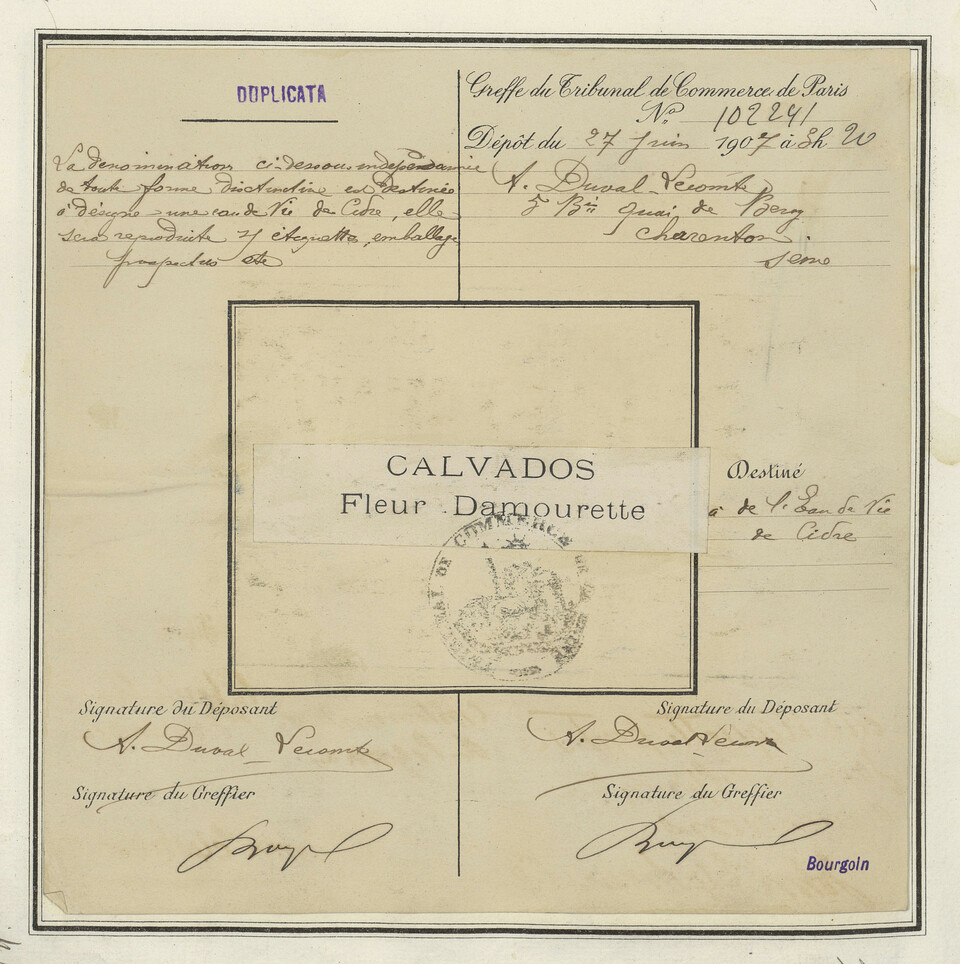 DUPLICATA
La denomination ci-dessous indépendamnie
de toute forme distinctive est destinée
à désigne une eau de Vie de Cidre, elle
sera reproduite s/ étiquette, emballage
prospectus etc
Greffe du Tribunal de Commerce de Paris
No. 102241
Dépôt du 27 Juin 1907 à 3h 20
A. Duval-Lecomte
5 Bis quai de Bercy
Charenton.
Seine
CALVADOS
Fleur Damourette
Destiné
à de l'Eau de Vie
de Cidre
DE COMMERCE DE
Signature du Déposant
A. Duval Lecomte
Signature du Greffier
Signature du Déposant
A. Duval Lecomte
Signature du Greffier
Bourgoin